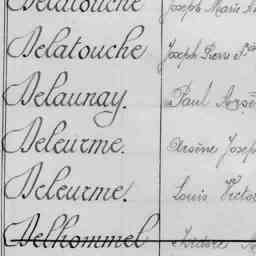 Delatouche Joseph Marie
Delatouche Joseph Pierre
Delaunay. Paul
Deleurme. Arsène Josep
Deleurme. Louis Victo
Delhommel Isidore